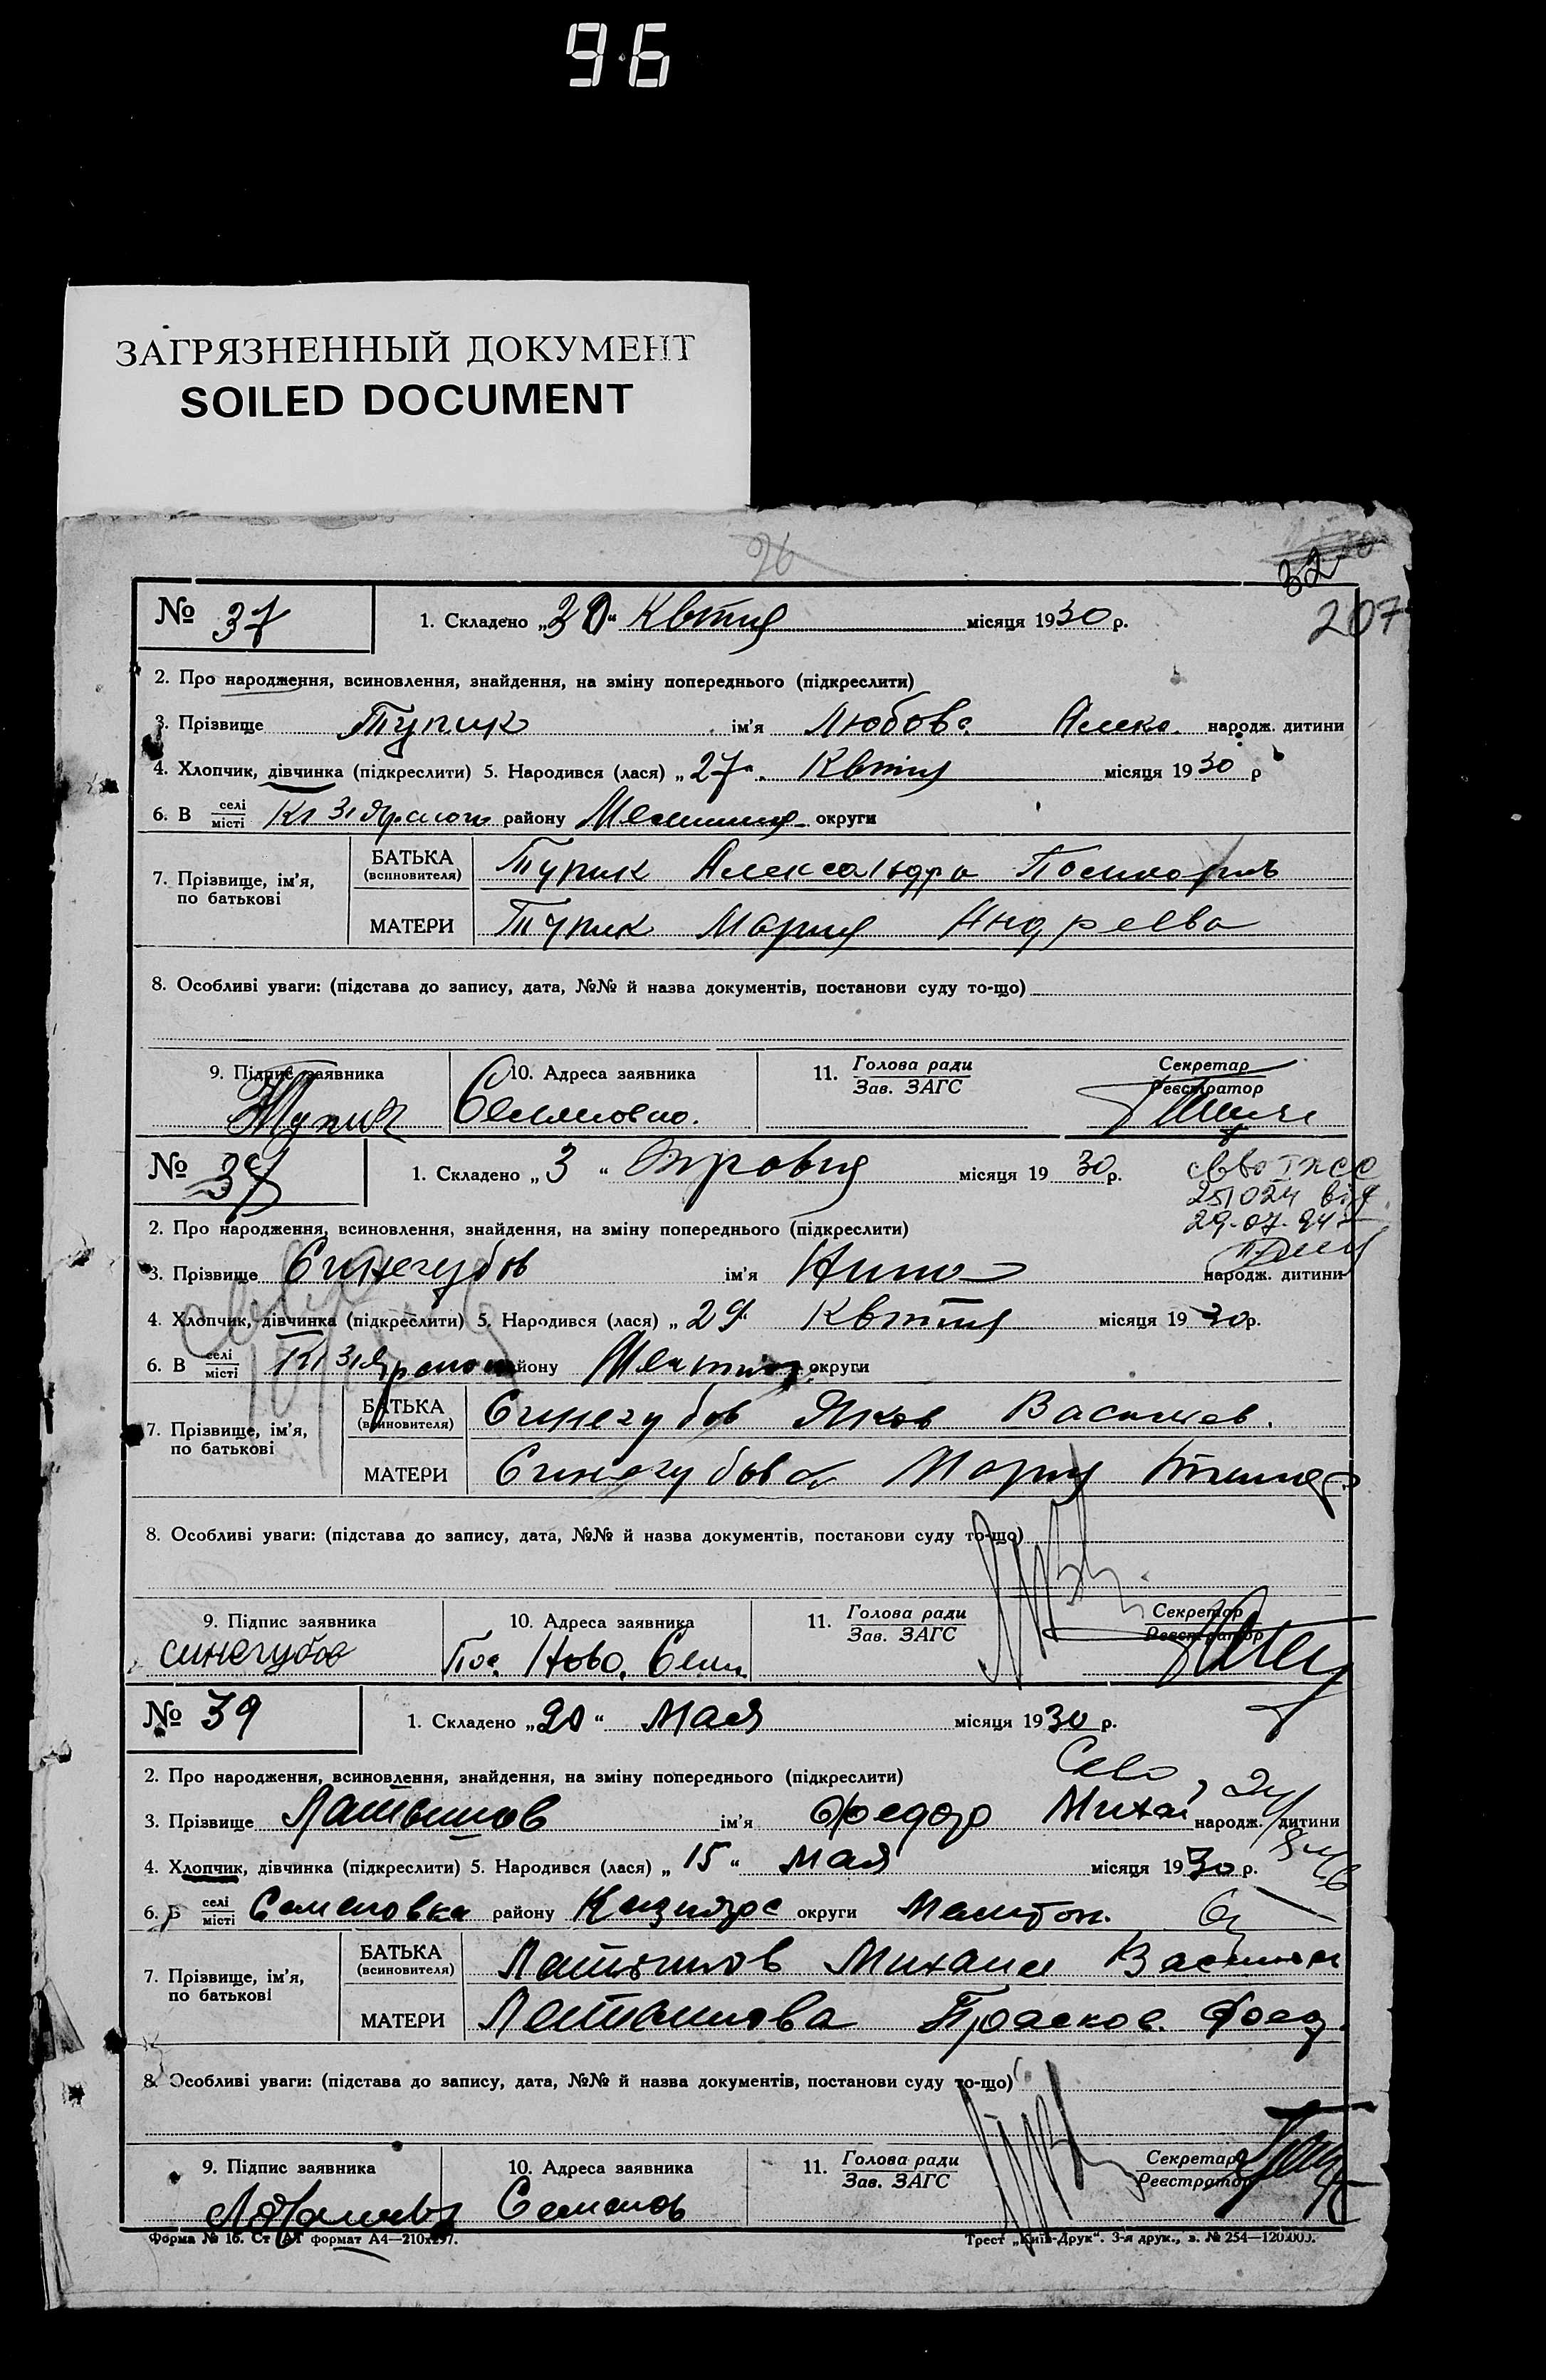 96
ЗАГРЯЗНЕННЫЙ ДОКУМЕНТ
SOILED DOCUMENT
26
32
207
№ 37 1. Складено „30“ Квтня місяця 1930 р.
2. Про народження, всиновлення, знайдення, на зміну попереднього (підкреслити)
3. Прізвище Тупик ім'я Любовь Алекс. народж. дитини
4. Хлопчик, дівчинка (підкреслити) 5. Народився (лася) „27“ Квтня місяця 1930 р
6. В селі/місті района району округи
7. Прізвище, ім'я, по батькові
БАТЬКА (всиновителя) Тупик Александра
МАТЕРИ Тупик Мария Андреева
8. Особливі уваги: (підстава до запису, дата, №№ й назва документів, постанови суду то-що)
9. Підпис заявника 10. Адреса заявника 11. Голова ради/Зав. ЗАГС Секретар/Реєстратор
Тупик
№ 1. Складено „3“ Травня місяця 1930 р.
251024 від
29-07-94
2. Про народження, всиновлення, знайдення, на зміну попереднього (підкреслити)
3. Прізвище Синегубов ім'я Нина народж. дитини
4. Хлопчик, дівчинка (підкреслити) 5. Народився (лася) „29“ Квтня місяця 1930 р.
6. В селі/місті району округи
7. Прізвище, ім'я, по батькові
БАТЬКА (всиновителя) Синегубов Яков Василев.
МАТЕРИ Синегубова Мария
8. Особливі уваги: (підстава до запису, дата, №№ й назва документів, постанови суду то-що)
9. Підпис заявника 10. Адреса заявника 11. Голова ради/Зав. ЗАГС Секретар/Реєстратор
синегубов Пос. Ново. Семен
№ 39 1. Складено „20“ Мая місяця 1930 р.
2. Про народження, всиновлення, знайдення, на зміну попереднього (підкреслити)
3. Прізвище Латышов ім'я Федор Михаи народж. дитини
4. Хлопчик, дівчинка (підкреслити) 5. Народився (лася) „15“ Мая місяця 1930 р.
6. В селі/місті Семеновка району округи Мелитоп.
7. Прізвище, ім'я, по батькові
БАТЬКА (всиновителя) Латышов Михаил
МАТЕРИ Латышова Прасков. Фед.
8. Особливі уваги: (підстава до запису, дата, №№ й назва документів, постанови суду то-що)
9. Підпис заявника 10. Адреса заявника 11. Голова ради/Зав. ЗАГС Секретар/Реєстратор
Семенов
Форма № 16. Ст формат А4—210х297. Трест „Київ-Друк“. 3-я друк., з. № 254—120.000.